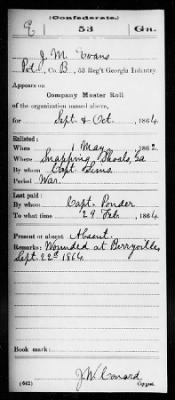 (Confederate.)
E 53 Ga.
J. M. Evans
Pvt., Co. B, 53 Reg't Georgia Infantry.
Appears on
Company Muster Roll
of the organization named above,
for Sept & Oct, 1864.
Enlisted:
When 1 May, 1862.
Where Snapping Shoals, Ga
By whom Capt. Sims
Period War.
Last paid:
By whom Capt. Ponder
To what time 29 Feb, 1864.
Present or absent Absent.
Remarks: Wounded at Berryville
Sept. 22d 1864
Book mark:
J W Conard
(642) Copyist.